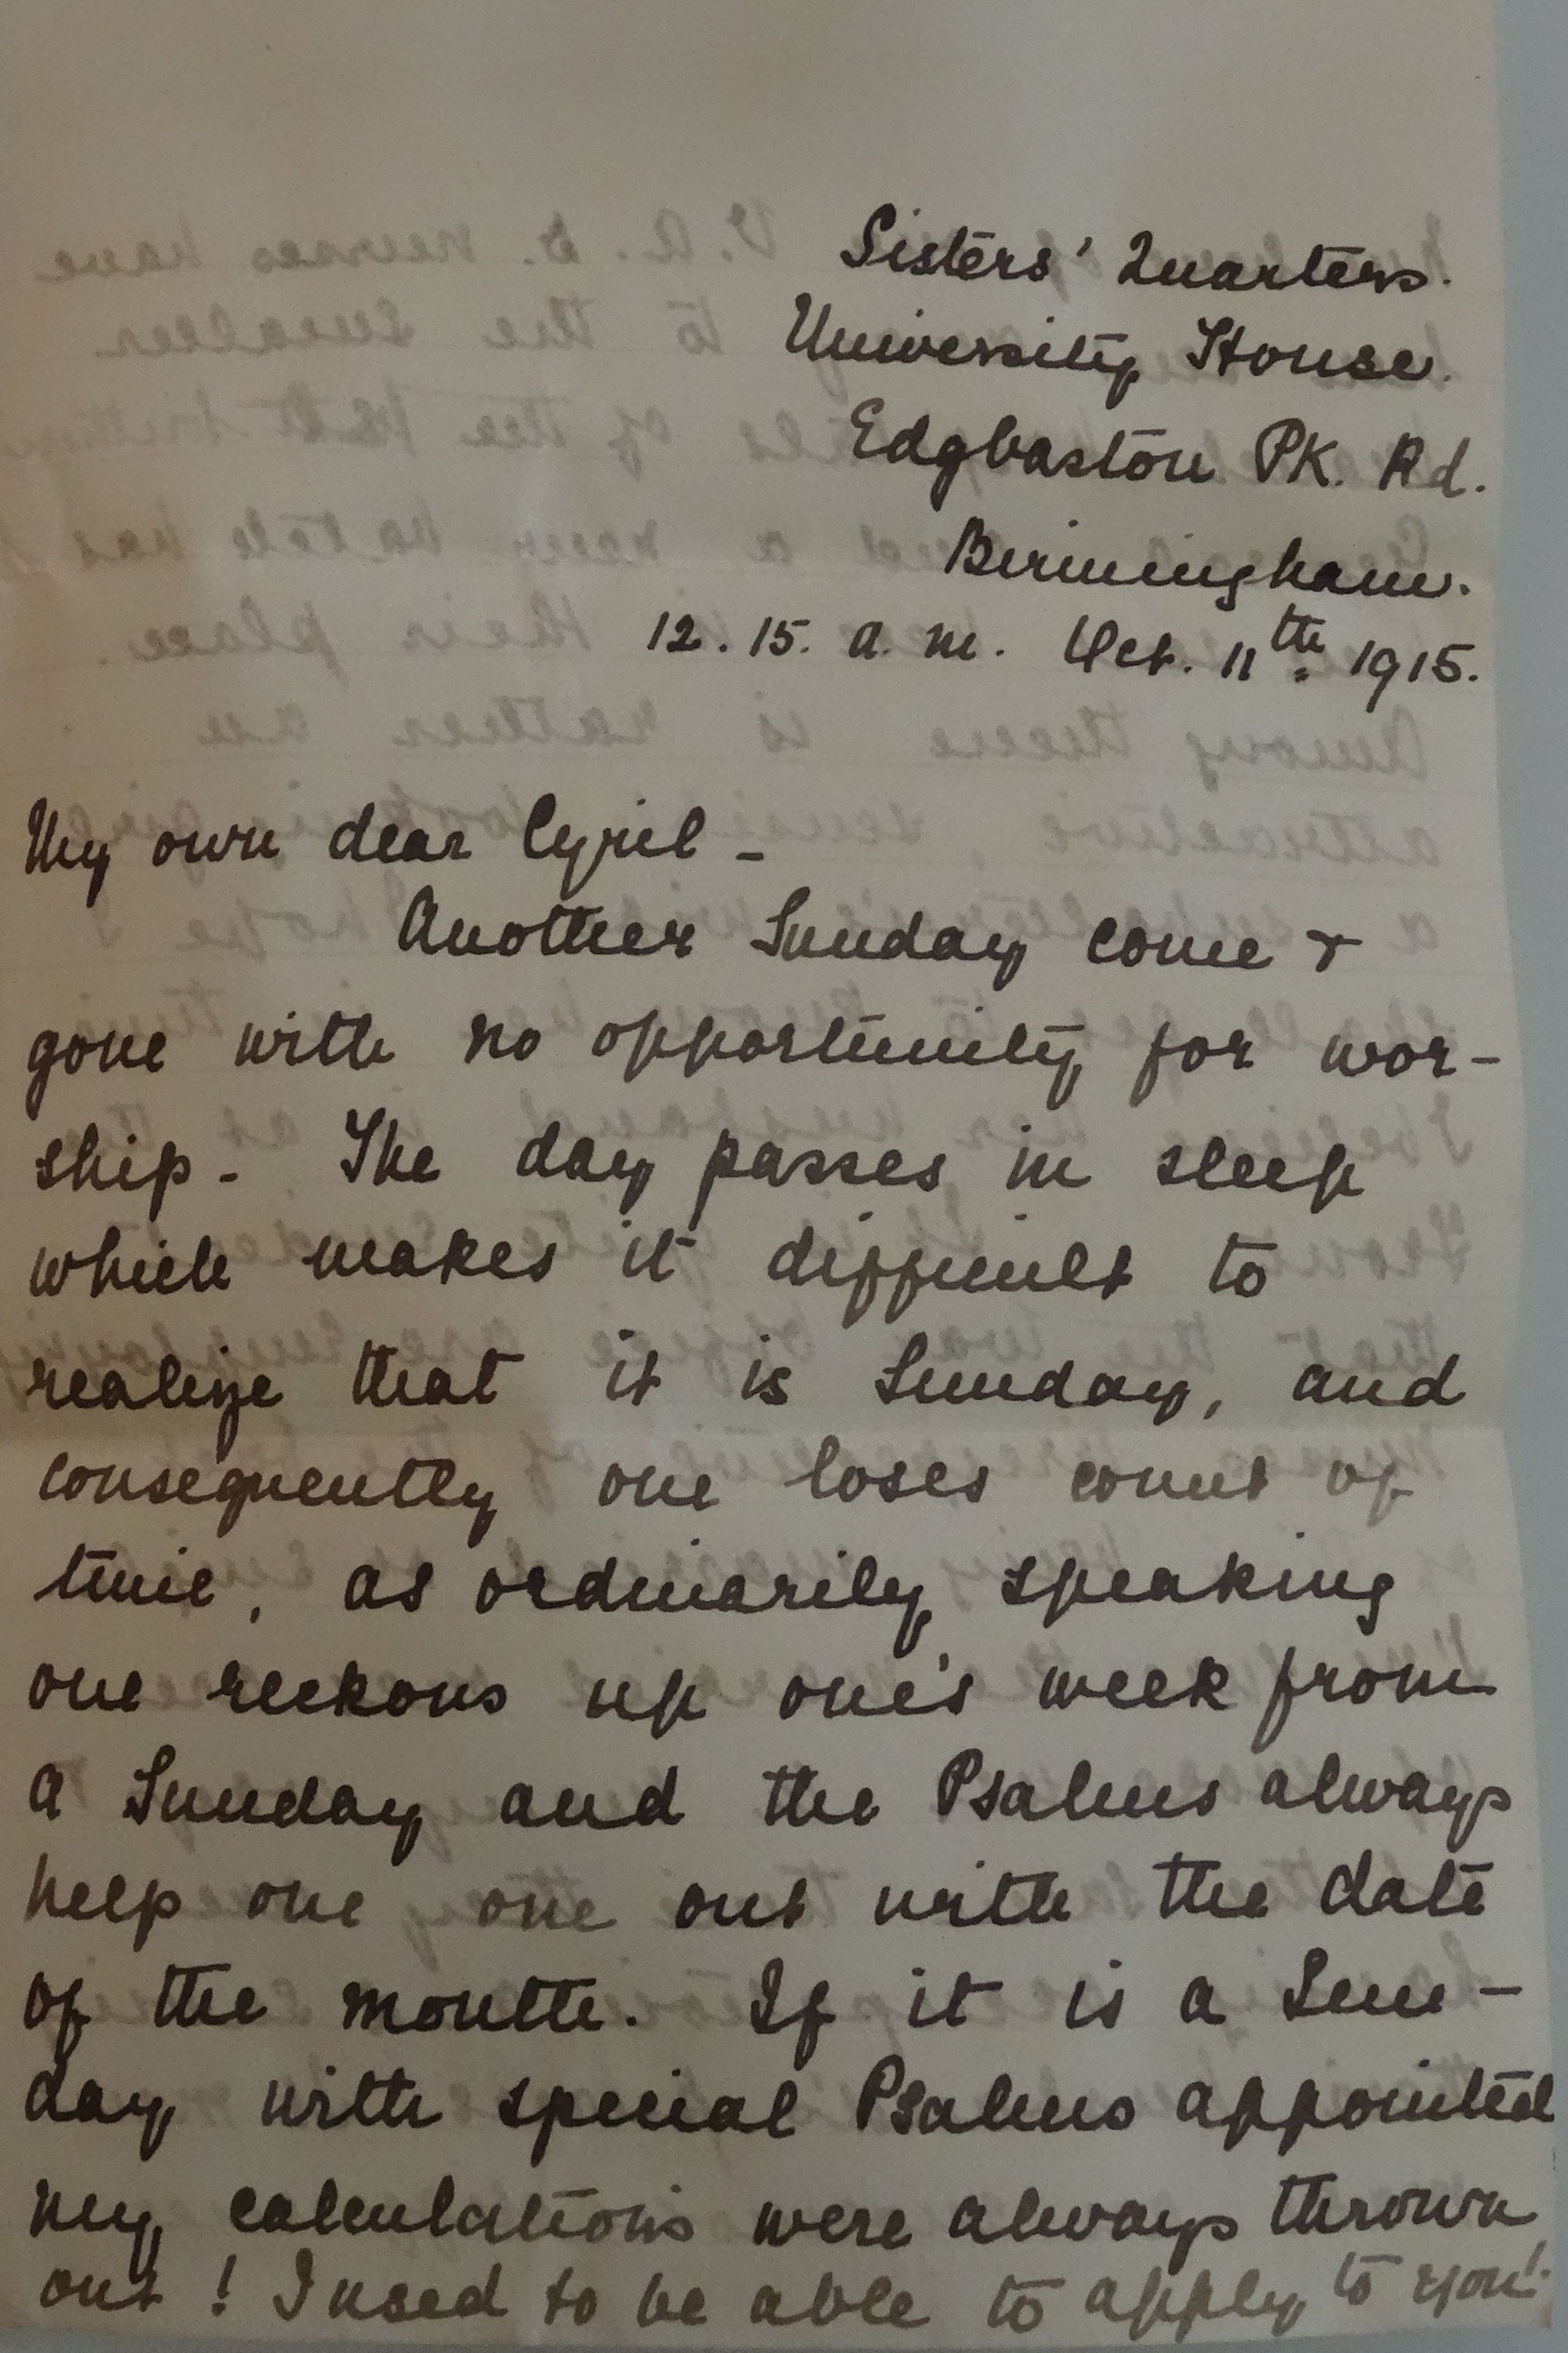 Sisters' Quarters.
University House.
Edgbaston PK. Rd.
Birmingham.
12.15. a.m. Oct. 11th 1915.
My own dear Cyril -
Another Sunday come &
gone with no opportunity for wor-
ship. The day passes in sleep
which makes it difficult to
realize that it is Sunday, and
consequently one loses count of
time, as ordinarily speaking
one reckons up one's week from
a Sunday and the Psalms always
help one one out with the date
of the month. If it is a Sun-
day with special Psalms appointed
my calculations were always thrown
out! I used to be able to apply to you!